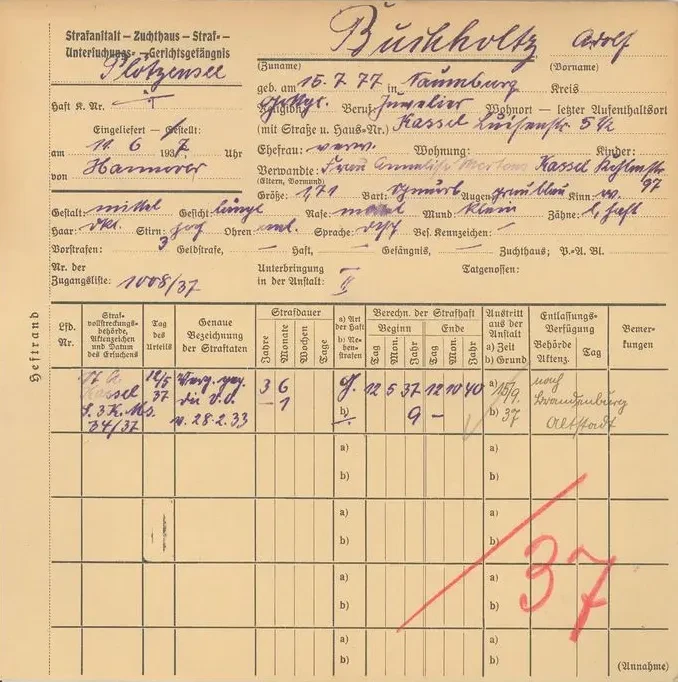 Strafanstalt – Zuchthaus – Straf- –
Untersuchungs- – Gerichtsgefängnis
Plötzensee
Haft K. Nr.
Eingeliefert – Gestellt:
am 11. 6 1937. Uhr
von Hannover
Buchholtz Adolf
(Zuname) (Vorname)
geb. am 15. 7 77 in Naumburg Kreis
Religion Beruf Juwelier Wohnort – letzter Aufenthaltsort
(mit Straße u. Haus-Nr.) Kassel Luisenstr 5 1/2
Ehefrau: verw. Wohnung: Kinder:
Verwandte: Frau Kassel 97
(Eltern, Vormund)
Größe: 1,71 Bart: Schnurb Augen graublau Kinn
Gestalt mittel Gesicht längl Nase Mund klein Zähne:
Haar: dkl. Stirn: hoch Ohren Sprache: dtsch Bes. Kennzeichen: –
Vorstrafen: 3 Geldstrafe, – Haft, – Gefängnis, – Zuchthaus; P.-A. Bl.
Nr. der
Zugangsliste: 1008/37
Unterbringung
in der Anstalt: II
Tatgenossen:
Heftrand
Lfd. Nr.
Straf-
vollstreckungs-
behörde,
Aktenzeichen
und Datum
des Ersuchens
Tag
des
Urteils
Genaue
Bezeichnung
der Straftaten
Strafdauer
Jahre Monate Wochen Tage
a) Art der Haft
b) Ne-
ben-
strafen
Berechn. der Strafhaft
Beginn Ende
Tag Mon. Jahr Tag Mon. Jahr
Austritt
aus der
Anstalt
a) Zeit
b) Grund
Entlassungs-
Verfügung
Behörde Tag
Aktenz.
Bemer-
kungen
St A 12/5 Verg. geg. 3 6 a) G. 12 5 37 12 10 40 a) 15/9. nach
Kassel 37 die V.O. – 1 b) 9 – b) 37 Brandenburg
v. 28.2.33 Altstadt
34/37
a)
b)
a)
b)
a)
b)
a)
b)
37
(Annahme)